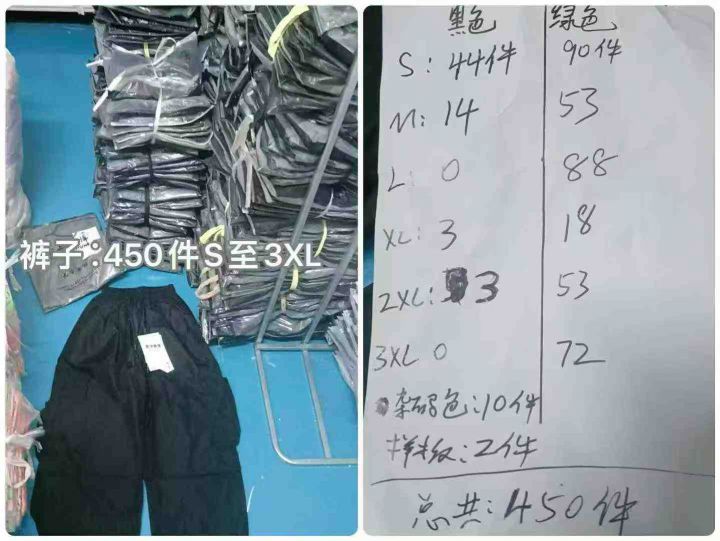 裤子:450件S至3XL
黑色 绿色
S: 44件 90件
M: 14 53
L: 0 88
XL: 3 18
2XL: 3 53
3XL 0 72
杂码色:10件
样板:2件
总共:450件